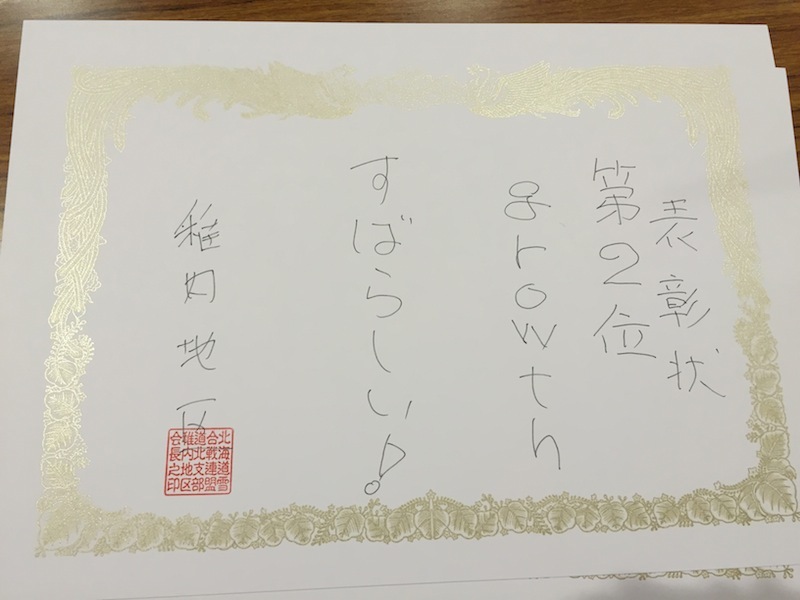 表彰状
第2位
growth
すばらしい!
稚内地区
北海道雪
合戦連盟
道北支部
稚内地区
会長之印